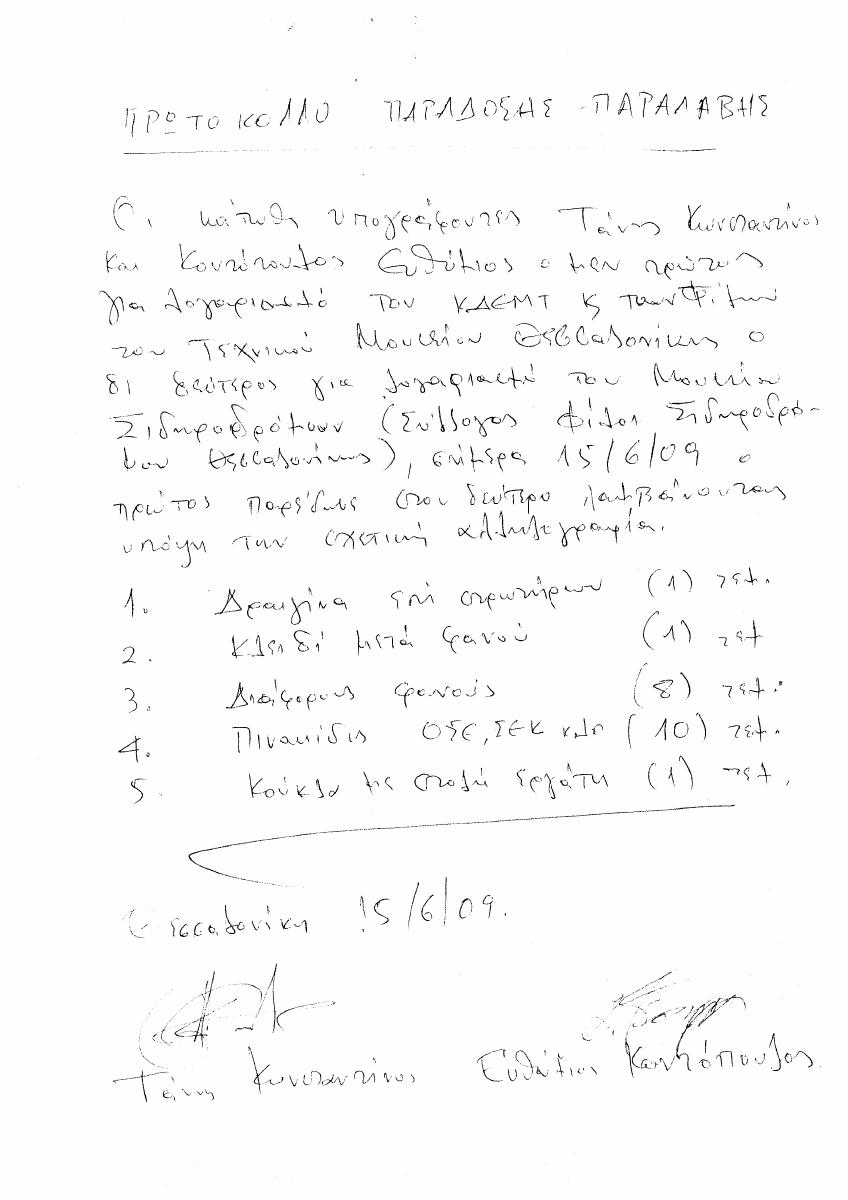 ΠΡΩΤΟΚΟΛΛΟ ΠΑΡΑΔΟΣΗΣ - ΠΑΡΑΛΑΒΗΣ
Οι κάτωθι υπογράφοντες Τάνης Κωνσταντίνος
και Κοντόπουλος Ευθύμιος ο μεν πρώτος
για λογαριασμό του ΚΔΕΜΤ & των Φίλων
του Τεχνικού Μουσείου Θεσσαλονίκης ο
δε δεύτερος για λογαριασμό του Μουσείου
Σιδηροδρόμων (Σύλλογος Φίλοι Σιδηροδρό-
μου Θεσσαλονίκης), σήμερα 15/6/09 ο
πρώτος παρέδωσε στον δεύτερο λαμβάνοντας
υπόψη την σχετική αλληλογραφία.
1. Δραιζίνα επί στρωτήρων (1) τεμ.
2. Κλειδί μετά φανού (1) τεμ
3. Διάφορους φανούς (8) τεμ.
4. Πινακίδες ΟΣΕ, ΣΕΚ κλπ (10) τεμ.
5. Κούκλα με στολή εργάτη (1) τεμ.
Θεσσαλονίκη 15/6/09.
Τάνης Κωνσταντίνος Ευθύμιος Κοντόπουλος